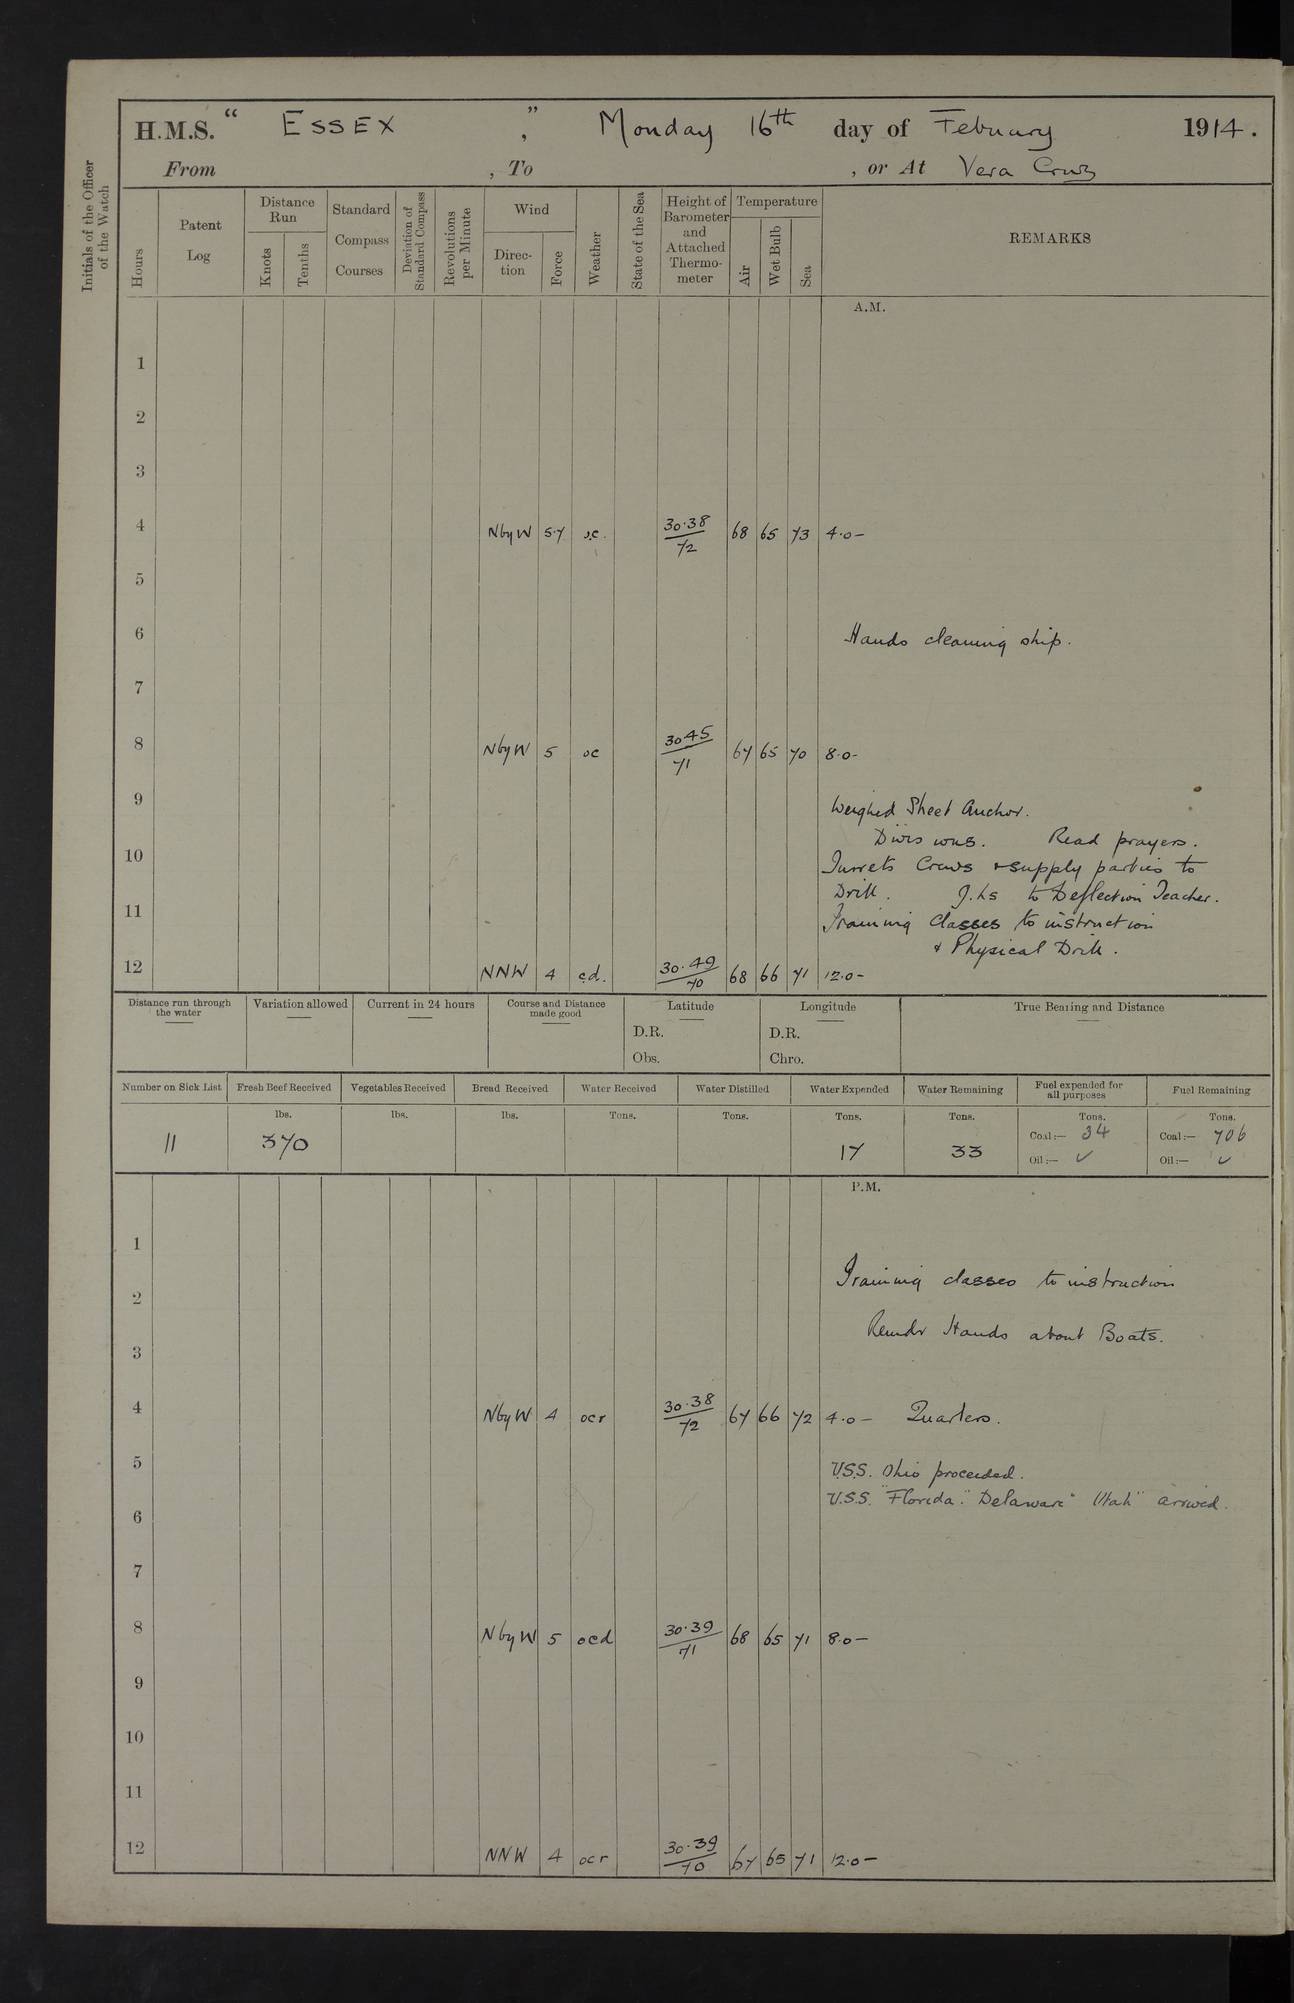 H.M.S. “ Essex ”, Monday 16th day of Febuary 1914.
From , To , or At Vera Cruz
Initials of the Officer of the Watch
Hours
Patent Log
Distance Run
Knots
Tenths
Standard Compass Courses
Deviation of Standard Compass
Revolutions per Minute
Wind
Direction
Force
Weather
State of the Sea
Height of Barometer and Attached Thermometer
Temperature
Air
Wet Bulb
Sea
REMARKS
A.M.
1
2
3
4 NbyW 5.7 o.c. 30.38/72 68 65 73 4.0–
5
6 Hands cleaning ship.
7
8 NbyW 5 oc 30.45/71 67 65 70 8.0–
9 Weighed Sheet Anchor.
Divisions. Read prayers.
10 Turrets Crews & supply parties to
Drill. G.Ls to Deflection Teacher.
11 Training Classes to instruction
& Physical Drill.
12 NNW 4 cd. 30.49/70 68 66 71 12.0–
Distance run through the water
Variation allowed
Current in 24 hours
Course and Distance made good
Latitude
D.R.
Obs.
Longitude
D.R.
Chro.
True Bearing and Distance
Number on Sick List 11
Fresh Beef Received lbs. 370
Vegetables Received lbs.
Bread Received lbs.
Water Received Tons.
Water Distilled Tons.
Water Expended Tons. 17
Water Remaining Tons. 33
Fuel expended for all purposes Tons.
Coal:— 34
Oil:— ✓
Fuel Remaining Tons.
Coal:— 706
Oil:— ✓
P.M.
1
Training classes to instruction
2
Remdr Hands about Boats.
3
4 NbyW 4 ocr 30.38/72 67 66 72 4.0– Quarters.
5 U.S.S. Ohio proceeded.
U.S.S. "Florida." "Delaware" "Utah" arrived.
6
7
8 NbyW 5 ocd 30.39/71 68 65 71 8.0–
9
10
11
12 NNW 4 ocr 30.39/70 67 65 71 12.0–